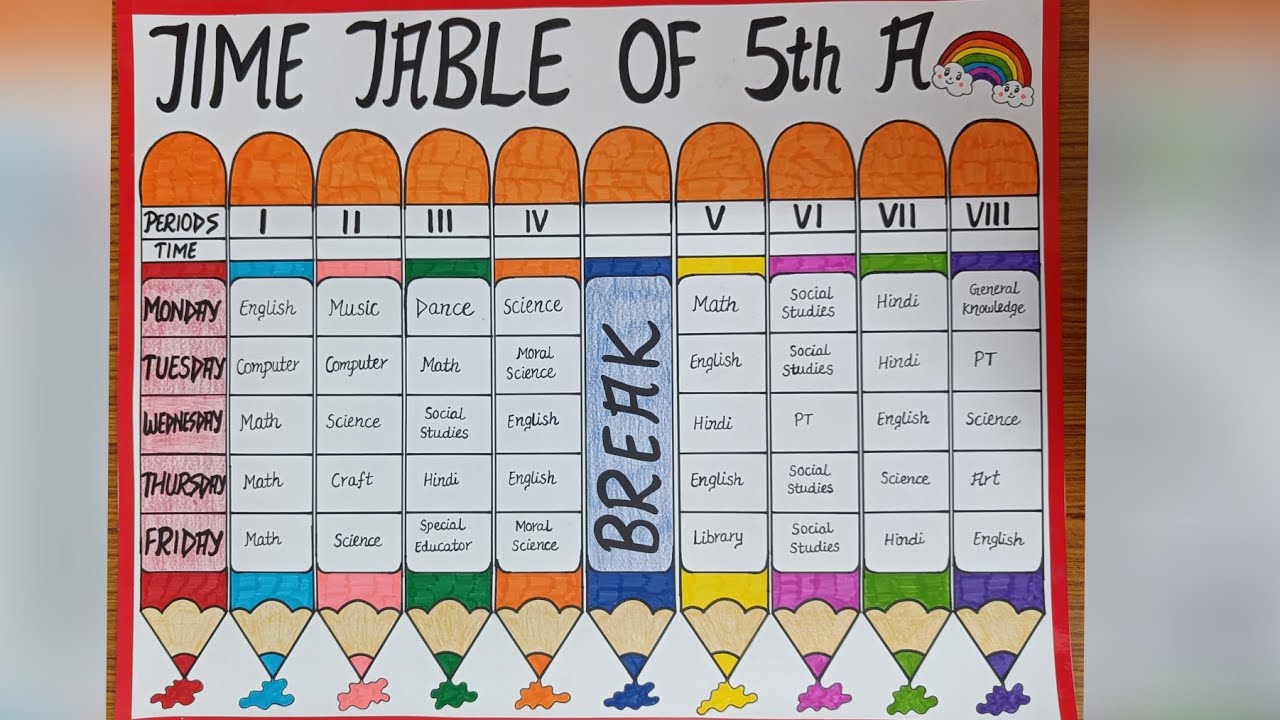 TIME TABLE OF 5th A
PERIODS I II III IV V VI VII VIII
TIME
MONDAY English Music Dance Science Math Social Studies Hindi General Knowledge
TUESDAY Computer Computer Math Moral Science English Social Studies Hindi PT
WEDNESDAY Math Science Social Studies English Hindi PT English Science
THURSDAY Math Craft Hindi English English Social Studies Science Art
FRIDAY Math Science Special Educator Moral Science Library Social Studies Hindi English
BREAK